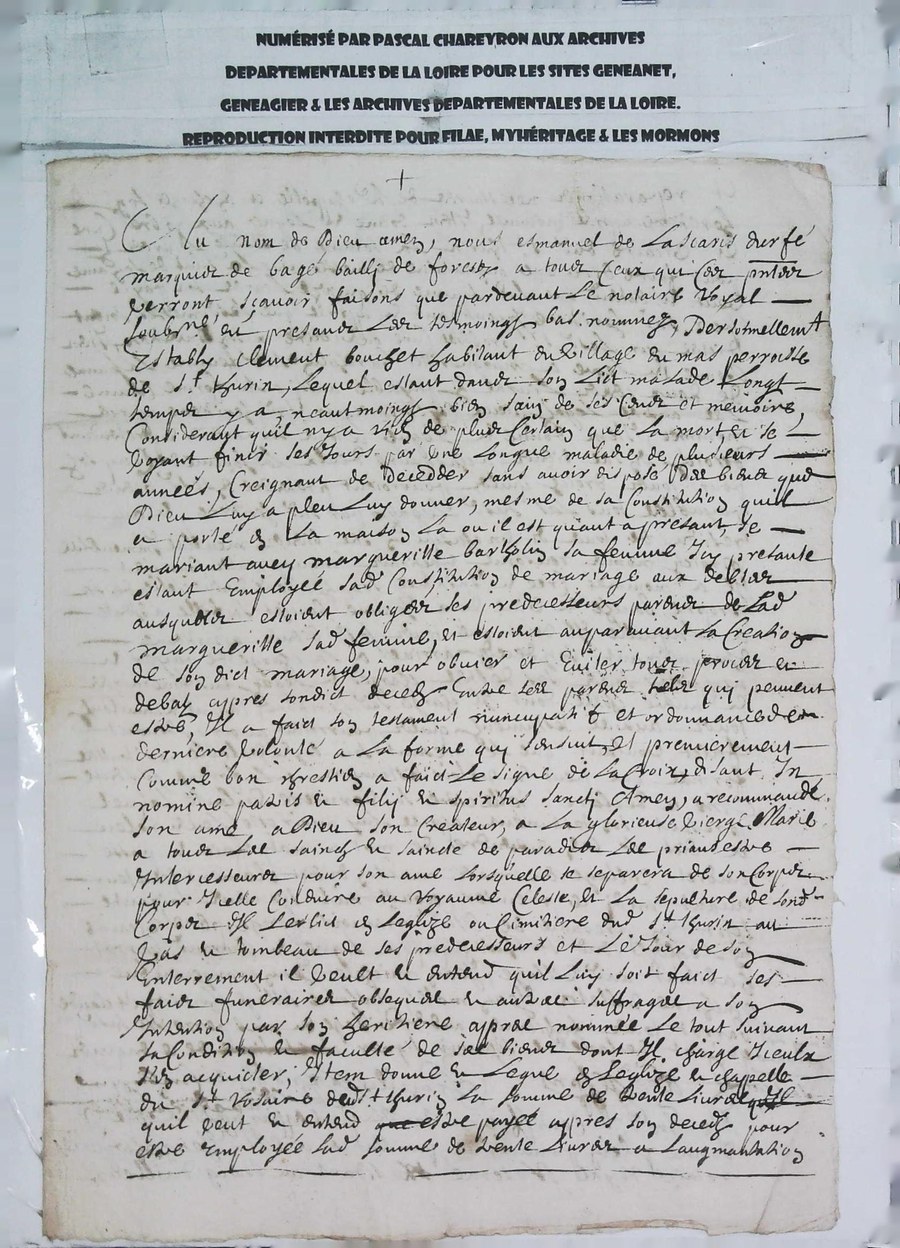 NUMÉRISÉ PAR PASCAL CHAREYRON AUX ARCHIVES
DEPARTEMENTALES DE LA LOIRE POUR LES SITES GENEANET,
GENEAGIER & LES ARCHIVES DEPARTEMENTALES DE LA LOIRE.
REPRODUCTION INTERDITE POUR FILAE, MYHÉRITAGE & LES MORMONS
Au nom de Dieu amen, nous esmanuel de Lascaris durfé
marquis de bagé bailly de forestz a tous ceux qui ces pntes
verront scavoir faisons que pardevant le notaire royal
soubsne et presans les tesmoings bas nommez, Personnellemt
Estably Clement bouchet habitant du village du mas perrotte
de St thurin, Lequel estant dans son lict malade Longt
temps y a, neautmoings bien sain de ses sens et memoire,
Considerant quil ny a rien de plus Certain que La mort, et se
voyant finir ses Jours par une Longue maladie de plusieurs
années, Creignant de decedder sans avoir disposé des biens que
Dieu Luy a pleu Luy donner, mesme de sa Constitution quil
a porté en La maison La ou il est quant a presant, se
mariant avey margueritte bartholin sa femme Icy presante
estant Employée sad Constitution de mariage aux debtes
ausquelz estoient obliges ses predecesseurs parens de Lad
margueritte sad femme, et estoient auparavant La Creation
de son dict mariage, pour obvier et Eviter tous proces et
debatz appres sondict deces Entre ses parens qui peuvent
estre, Il a faict son testament nuncupatif et ordonnance de
derniere volonté a La forme qui sensuit, Et premierement
Comme bon chrestien a faict Le signe de La Croix, disant In
nomine patris et filij et spiritus sancti Amen, a recommandé
son ame a Dieu son Createur, a La glorieuse vierge Marie
a tous Les sainctz et sainctes de paradis Les priant estre
Intercesseurs pour son ame Lorsquelle se separera de son Corps
pour Icelle Conduire au Royaume Celeste, et La sepulture de sond
Corps Il Leslict en Leglize ou Cimitiere dud St thurin au
vas et tombeau de ses predecesseurs et Le Jour de son
Enterrement il veult et entend quil Luy soit faict ses
fais funeraires obseques et autres suffrages a son
Intention par son heritiere appres nommée Le tout suivant
sa Condition et faculté de ses biens dont Il charge Iceulx
sen acquicter, Item donne et Legue en Leglize et chappelle
du St Rosaire dud St thurin La somme de trente Livres
quil veut et entend estre payée appres son deces pour
estre Employée Lad somme de trente Livres a Laugmantation